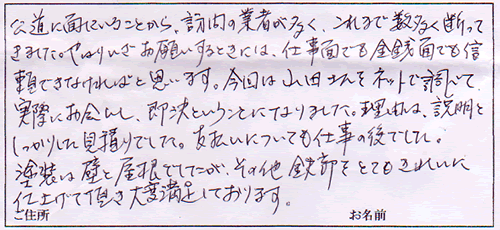 公道に面していることから、訪内の業者が多く、これまで数多く断って
きました。やはりいざお願いするときには、仕事面でも金銭面でも信
頼できなければと思います。今回は山田さんをネットで調べて、
実際にお会いし、即決ということになりました。理由は、説明と
しっかりした見積りでした。支払いについても仕事の後でした。
塗装は壁と屋根でしたが、その他鉄部をとてもきれいに
仕上げて頂き大変満足しております。
ご住所 お名前